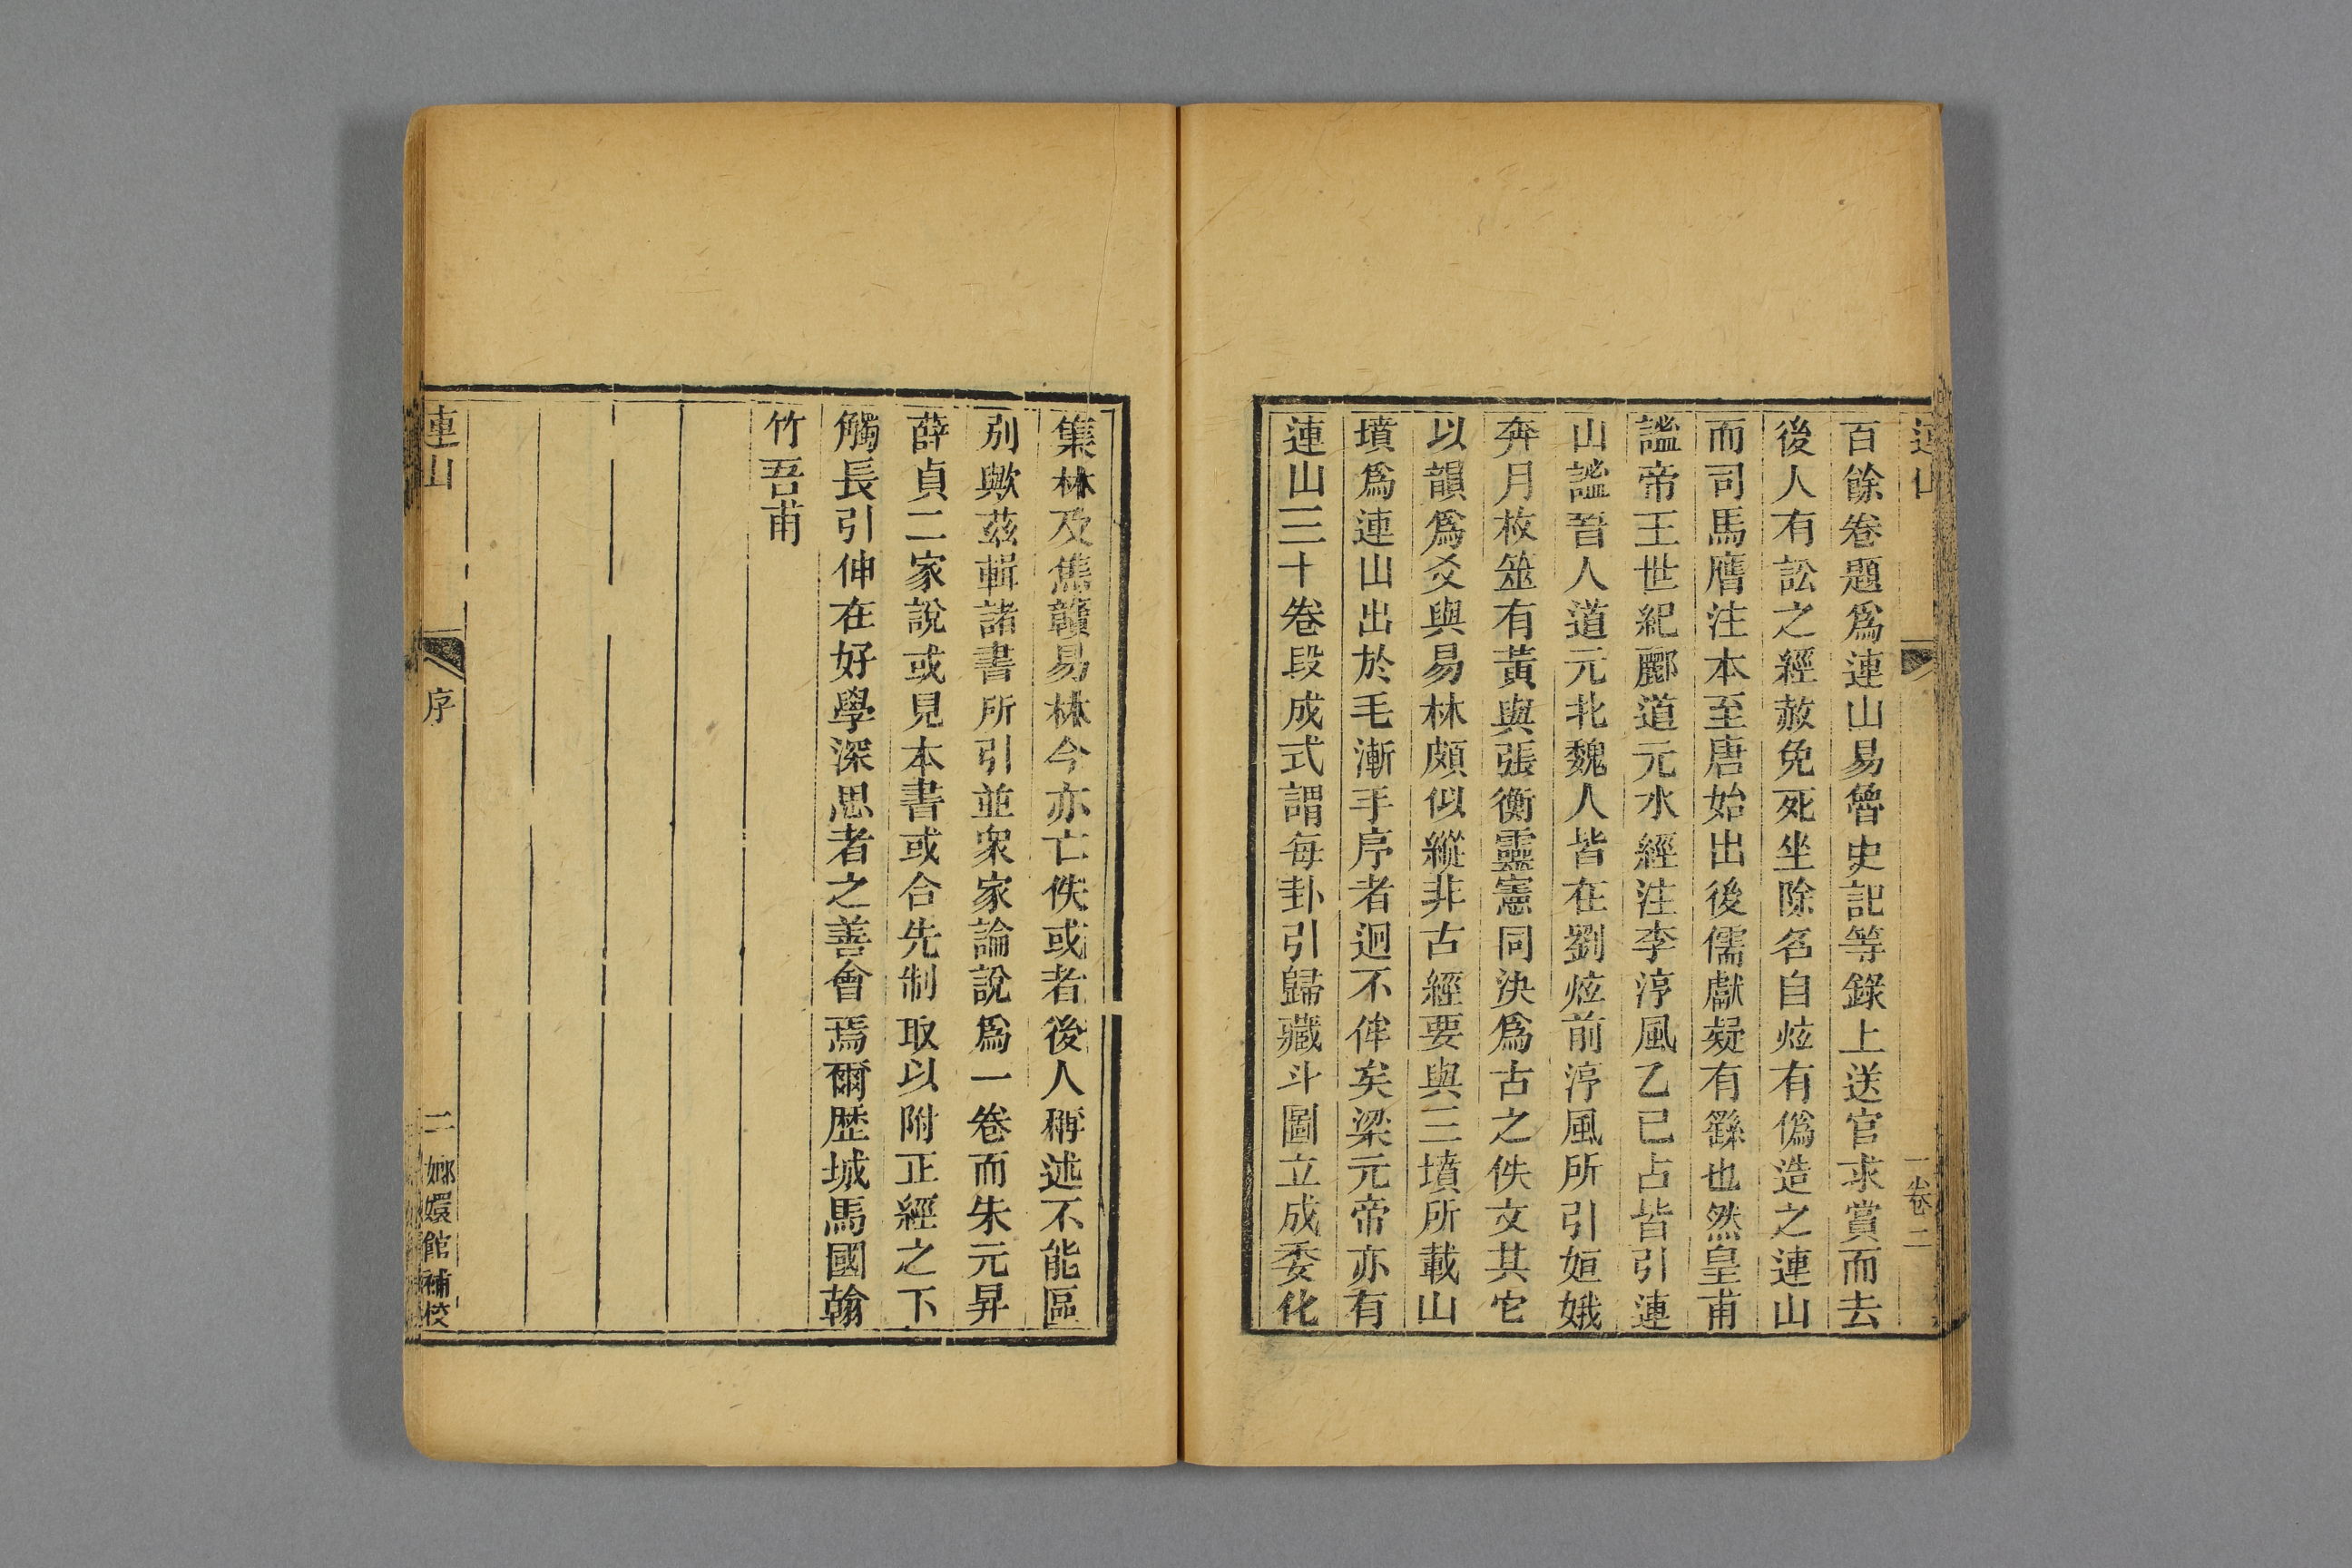 連山
一 卷二
百餘卷題爲連山易魯史記等錄上送官求賞而去
後人有訟之經赦免死坐除名自炫有僞造之連山
而司馬膺注本至唐始出後儒獻疑有繇也然皇甫
謐帝王世紀酈道元水經注李淳風乙巳占皆引連
山謐晉人道元北魏人皆在劉炫前淳風所引姮娥
奔月枚筮有黃與張衡靈憲同決爲古之佚文其它
以韻爲爻與易林頗似縱非古經要與三墳所載山
墳爲連山出於毛漸手序者迥不侔矣梁元帝亦有
連山三十卷段成式謂每卦引歸藏斗圖立成委化
集林及焦贛易林今亦亡佚或者後人稱述不能區
別歟茲輯諸書所引並衆家論說爲一卷而朱元昇
薛貞二家說或見本書或合先制取以附正經之下
觸長引伸在好學深思者之善會焉爾歷城馬國翰
竹吾甫
連山
序
二 嫏嬛館補校